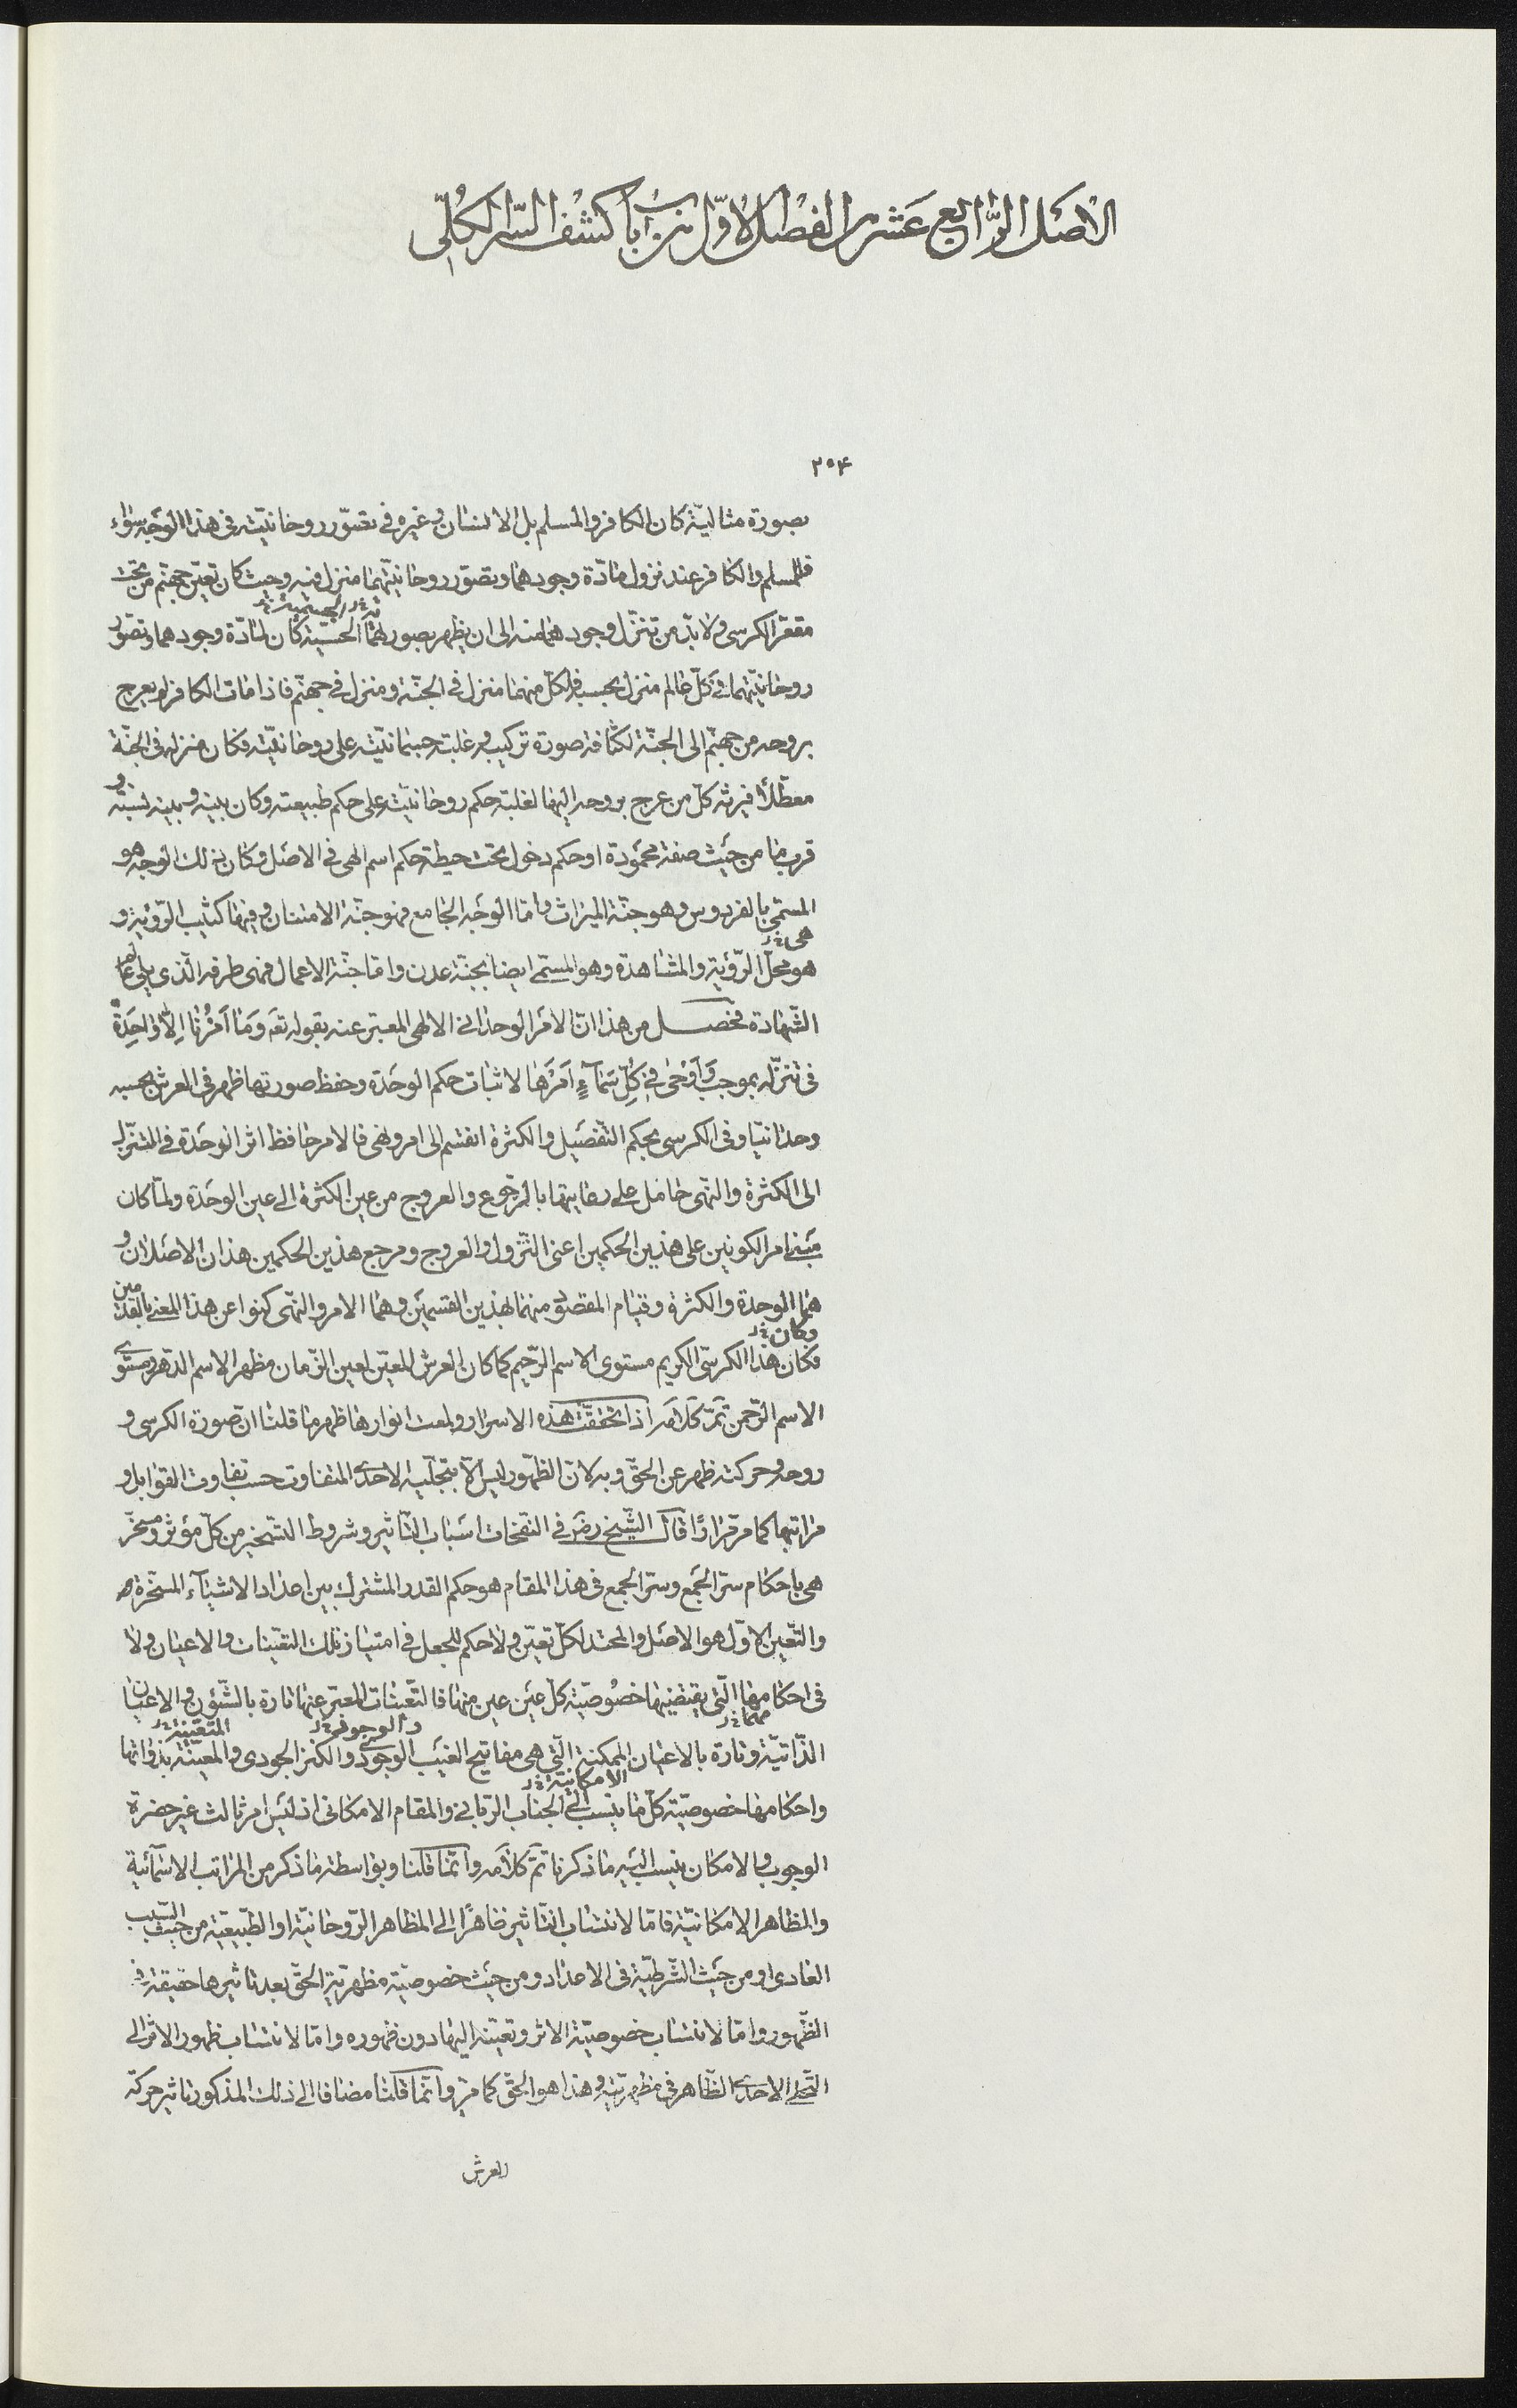 الاصل الرّابع عشر من الفصل الاوّل من باب كشف السّر الكلّی
۲۵۴
بصورة مثاليّة كان الكافر والمسلم بل الانسان وغيره فى تصوّر روحانيّته فى هذا الوجه سواء
فللمسلم والكافر عند نزول مادّة وجودهما وتصوّر روحانيّتهما منزل فيه وحيث كان تعيّن جهنّم من تحت
مقعّر الكرسى ولابدّ من تنزّل وجودهما منه الى ان يظهر بصورتهما الحسّيّة كان لمادّة وجودهما وتصوّر
روحانيّتهما فى كلّ عالم منزل بحسبه فلكلّ منهما منزل فى الجنّة ومنزل فى جهنّم فاذا مات الكافر لم يعرج
بروحه من جهنّم الى الجنّة لكثافة صورة تركيبه وغلبة جسمانيّته على روحانيّته فكان منزله فى الجنّة
معطّلاً فيرثه كلّ من عرج بروحه اليها لغلبة حكم روحانيّته على حكم طبيعته وكان بينه وبينه نسبة و
قرب ما من حيث صفة محمودة او حكم دخول تحت حيطة حكم اسم الهى فى الاصل وكان بذلك الوجه هو
المسمّى بالفردوس وهو جنّة الميراث وامّا الوجه الجامع فهو جنّة الامتنان وفيها كثيب الرّؤية و
هو محلّ الرّؤية والمشاهدة وهو المسمّى ايضا بجنّة عدن وامّا جنّة الاعمال فهى طرفه الّذى يلى عالم
الشّهادة فحصل من هذا انّ الامر الوحدانى الالهى المعبّر عنه بقوله تعه وَمَا اَمْرُنَا اِلّا وَاحِدَةٌ
فى تنزّله بموجب وَاَوْحٰى فى كُلِّ سَمَآءٍ اَمْرَهَا لاثبات حكم الوحدة وحفظ صورتها ظهر فى العرش بحسبه
وحدانيّا وفى الكرسى بحكم التّفصيل والكثرة انقسم الى امر ونهى فالامر حافظ اثر الوحدة فى التنزّل
الى الكثرة والنّهى حامل على رعايتها بالرّجوع والعروج من عين الكثرة الى عين الوحدة ولمّا كان
مبنى امر الكونين على هذين الحكمين اعنى النّزول والعروج ومرجع هذين الحكمين هذان الاصلان و
هما الوحدة والكثرة وقيام المقصود منهما بهذين القسمين وهما الامر والنّهى كنوا عن هذا المعنى بالقدمين
وكان خ‌ل
فكان هذا الكرسّى الكريم مستوى الاسم الرّحيم كما كان العرش المعيّن لعين الزّمان مظهر الاسم الدّهر ومستوى
الاسم الرّحمن تمّ كلامه اذا تحقّقت هذه الاسرار ولمعت انوارها ظهر ما قلنا انّ صورة الكرسى و
روحه وحركته ظهر عن الحقّ وبه لانّ الظّهور ليس الّا بتجلّيه الاحدى المتفاوت حسب تفاوت القوابل و
مراتبها كما مرّ مرارًا قال الشّيخ رضه فى النّفحات اسباب التّاثير وشروط التّسخير من كلّ مؤثر ومسخّر
هى باحكام سرّ الجمع وسرّ الجمع فى هذا المقام هو حكم القدر المشترك بين اعداد الاشيآء المسخّرة
والتّعين الاوّل هو الاصل والمحتد لكلّ تعيّن ولا حكم للجعل فى امتياز تلك التعيّنات والاعيان ولا
فى احكامها الّتى يقتضيها خصوصيّة كلّ عين عين منها فالتّعيّنات المعبّر عنها تارة بالشّؤن والاعيان
الذّاتيّة وتارة بالاعيان الممكنة الّتى هى مفاتيح الغيب الوجودى والكنز الجودى والمعيّنة بذواتها
واحكامها خصوصيّة كلّ ما ينسب الى الجناب الرّبانى والمقام الامكانى اذ ليس امر ثالث غير حضرة
الوجوب والامكان ينسب اليه ما ذكرنا تمّ كلامه وانّما قلنا وبواسطة ما ذكر من المراتب الاسمآئية
والمظاهر الامكانيّة فامّا لانتساب التّاثير ظاهرًا الى المظاهر الرّوحانيّة او الطّبيعيّة من حيث السّبب
العادى او من حيث الشّرطيّة فى الاعداد ومن حيث خصوصيّة مظهريّة الحقّ بعد تاثيرها حقيقة فى
الظّهور وامّا لانتساب خصوصيّة الاثر وتعيّنه اليها دون ظهوره وامّا لانتساب ظهور الاثر الى
التّجلى الاحدى الظّاهر فى مظهريّته وهذا هو الحقّ كما مرّ وانّما قلنا مضافا الى ذلك المذكور تاثير حركة
العرش